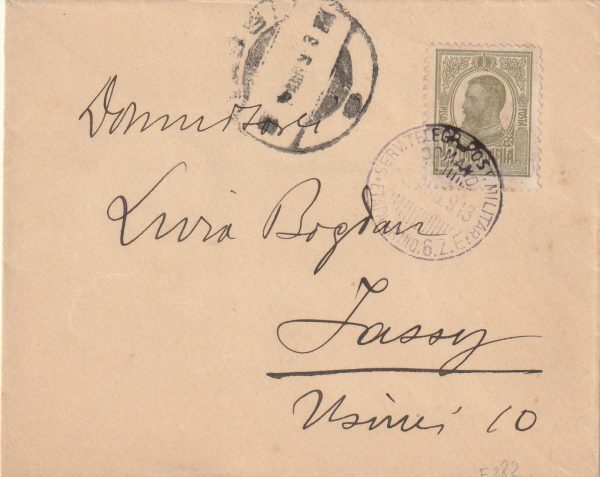 Domnisoarei
Livia Bogdan
Jassy
Usinei 10
SERV. TELEGR. POST. MILITAR
913